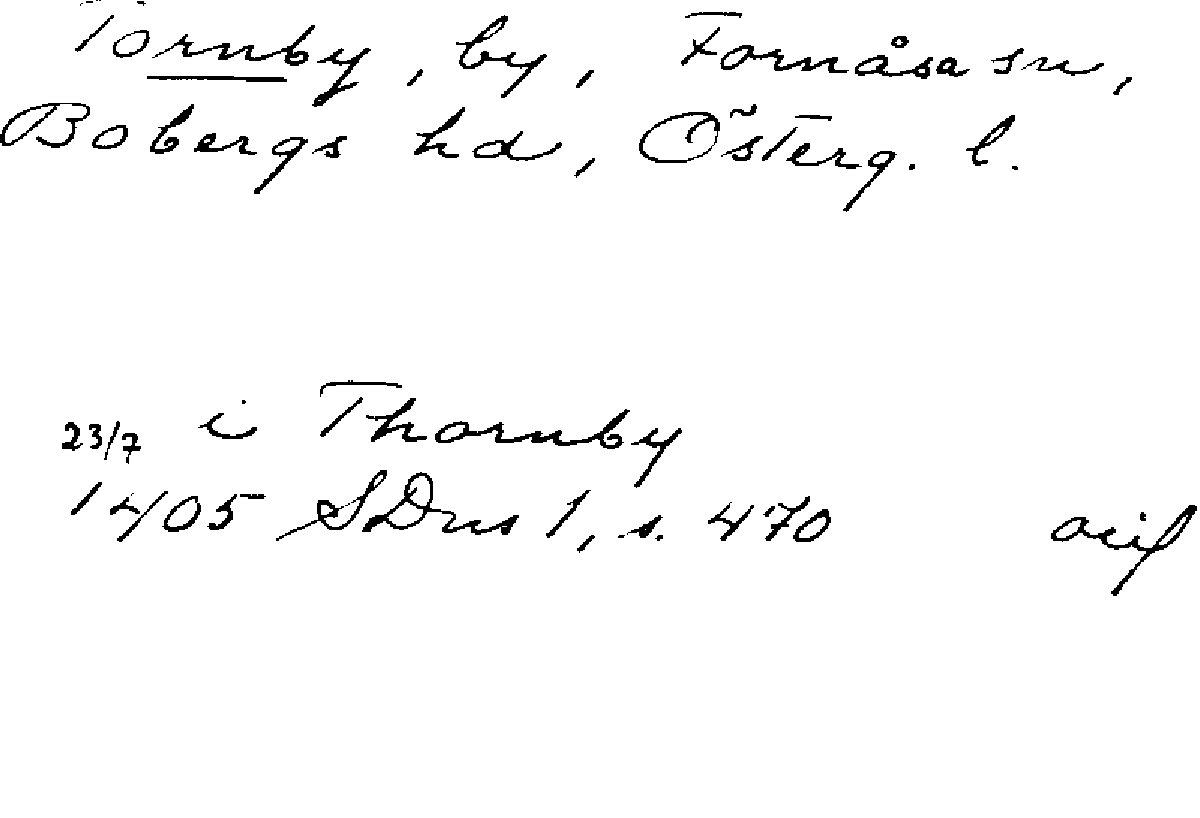 Tornby, by, Fornåsa sn,
Bobergs hd, Österg. l.
23/7 i Thornby
1405 SDns 1, s. 470 avs